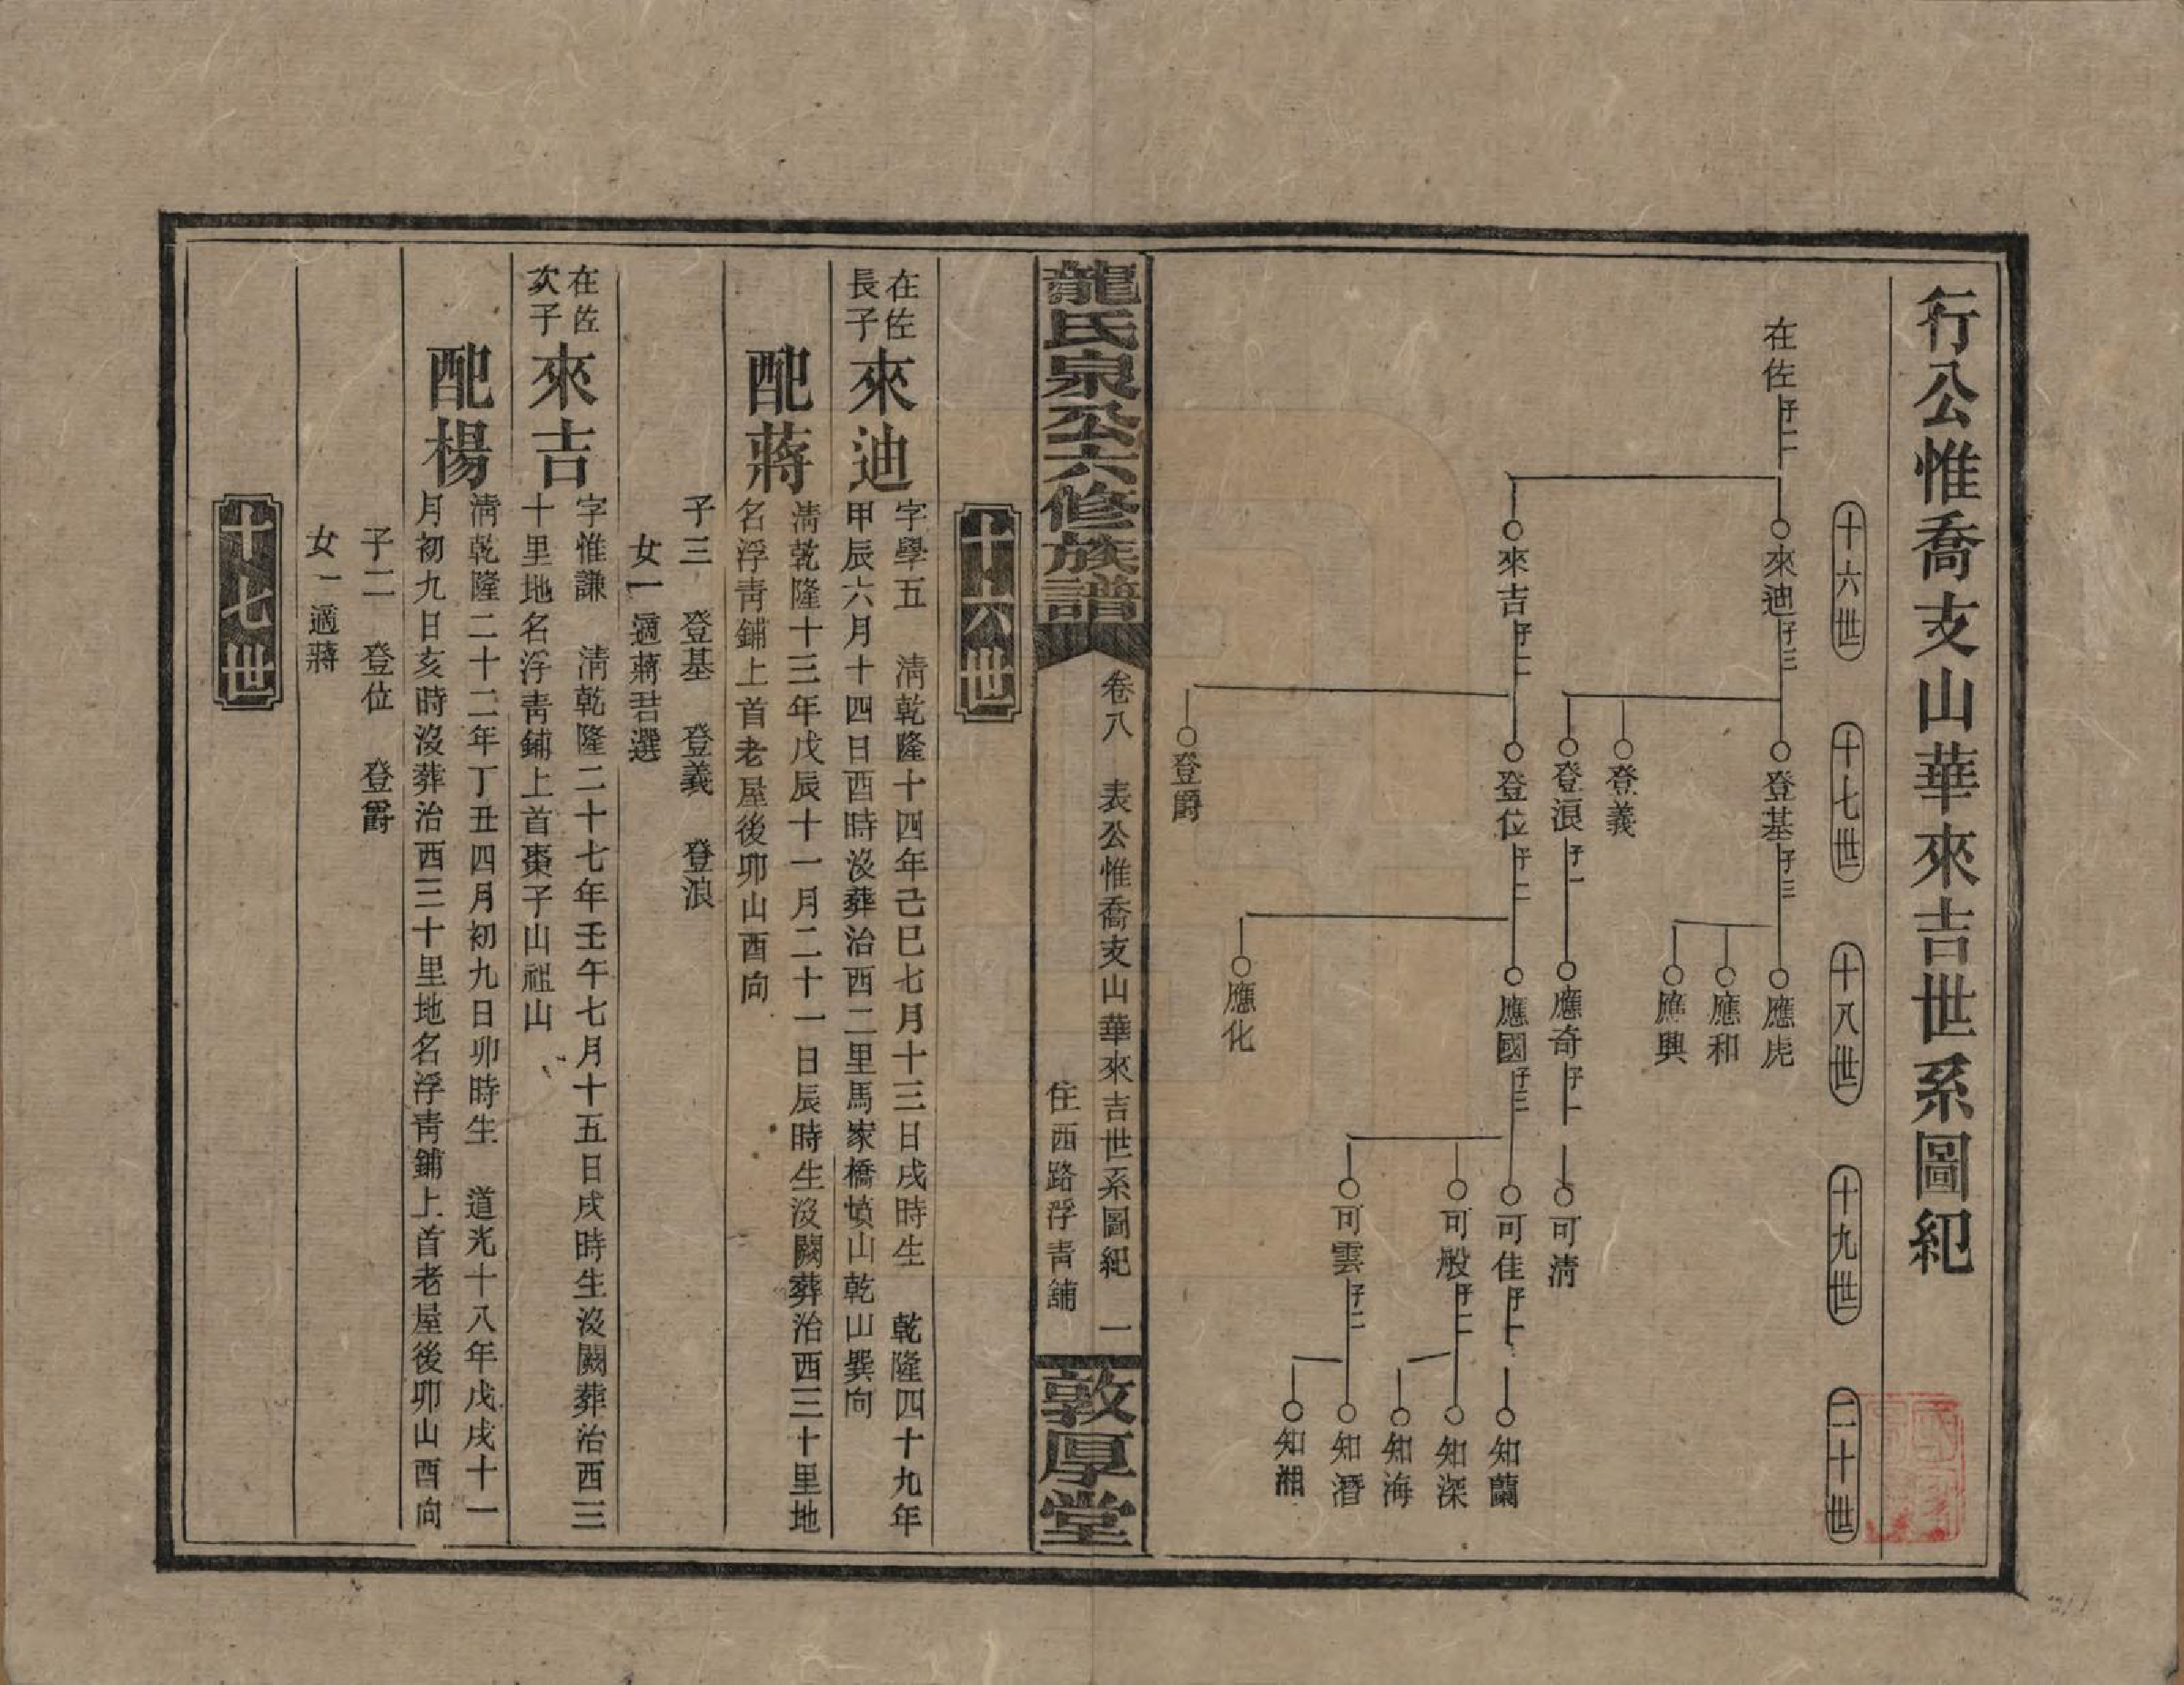 行公惟喬支山華來吉世系圖紀
十六世
十七世
十八世
十九世
二十世
在佐 子二
來迪 子三
登基 子三
應虎
應和
應興
登義
登浪 子一
應奇 子一
可清
來吉 子二
登位 子二
應國 子三
可佳 子一
知蘭
可殷 子二
知深
知海
可雲 子二
知潛
知湘
應化
登爵
龍氏泉公六修族譜
卷八 表公惟喬支山華來吉世系圖紀 一
住西路浮青舖
敦厚堂
十六世
在佐
長子
來迪
字學五 清乾隆十四年己巳七月十三日戌時生 乾隆四十九年
甲辰六月十四日酉時沒葬治西二里馬家橋墳山乾山巽向
配蔣
清乾隆十三年戊辰十一月二十一日辰時生沒闕葬治西三十里地
名浮青鋪上首老屋後卯山酉向
子三 登基 登義 登浪
女一適蔣君選
在佐
次子
來吉
字惟謙 清乾隆二十七年壬午七月十五日戌時生沒闕葬治西三
十里地名浮青鋪上首棗子山祖山
配楊
清乾隆二十二年丁丑四月初九日卯時生 道光十八年戊戌十一
月初九日亥時沒葬治西三十里地名浮青鋪上首老屋後卯山酉向
子二 登位 登爵
女一適蔣
十七世